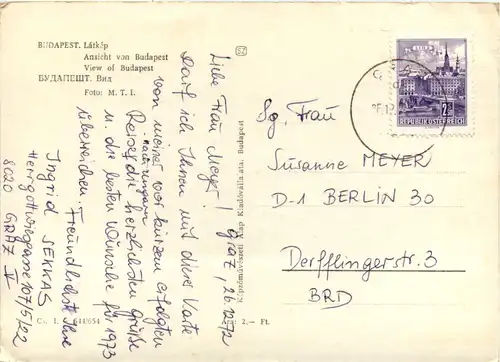 BUDAPEST. Látkép
Ansicht von Budapest
View of Budapest
БУДАПЕШТ. Вид
Foto: M. T. I.
Graz, 26.12.72
Liebe Frau Meyer!
Darf ich Ihnen mit dieser Karte
von meiner vor kurzem erfolgten
nach Ungarn
Reise die herzlichsten Grüße
u. die besten Wünsche für 1973
überreichen. Freundlichst Ihre
Ingrid SEKKAS
Herrgottwiesgasse 107/5/22
8020 GRAZ
Képzőművészeti Alap Kiadóvállalata, Budapest
Ára: 2.— Ft.
REPUBLIK ÖSTERREICH
Sg. Frau
Susanne MEYER
D-1 BERLIN 30
Derfflingerstr. 3
BRD